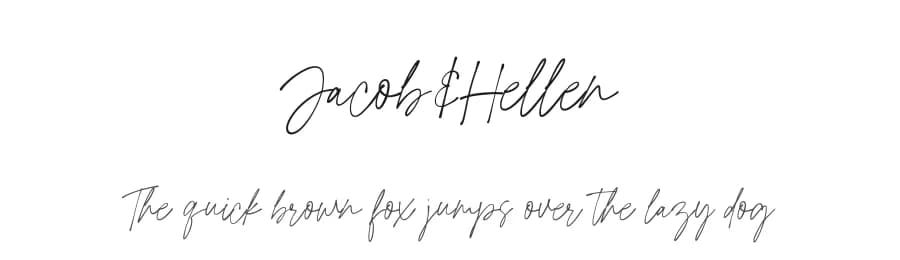 Jacob&Hellen
The quick brown fox jumps over the lazy dog